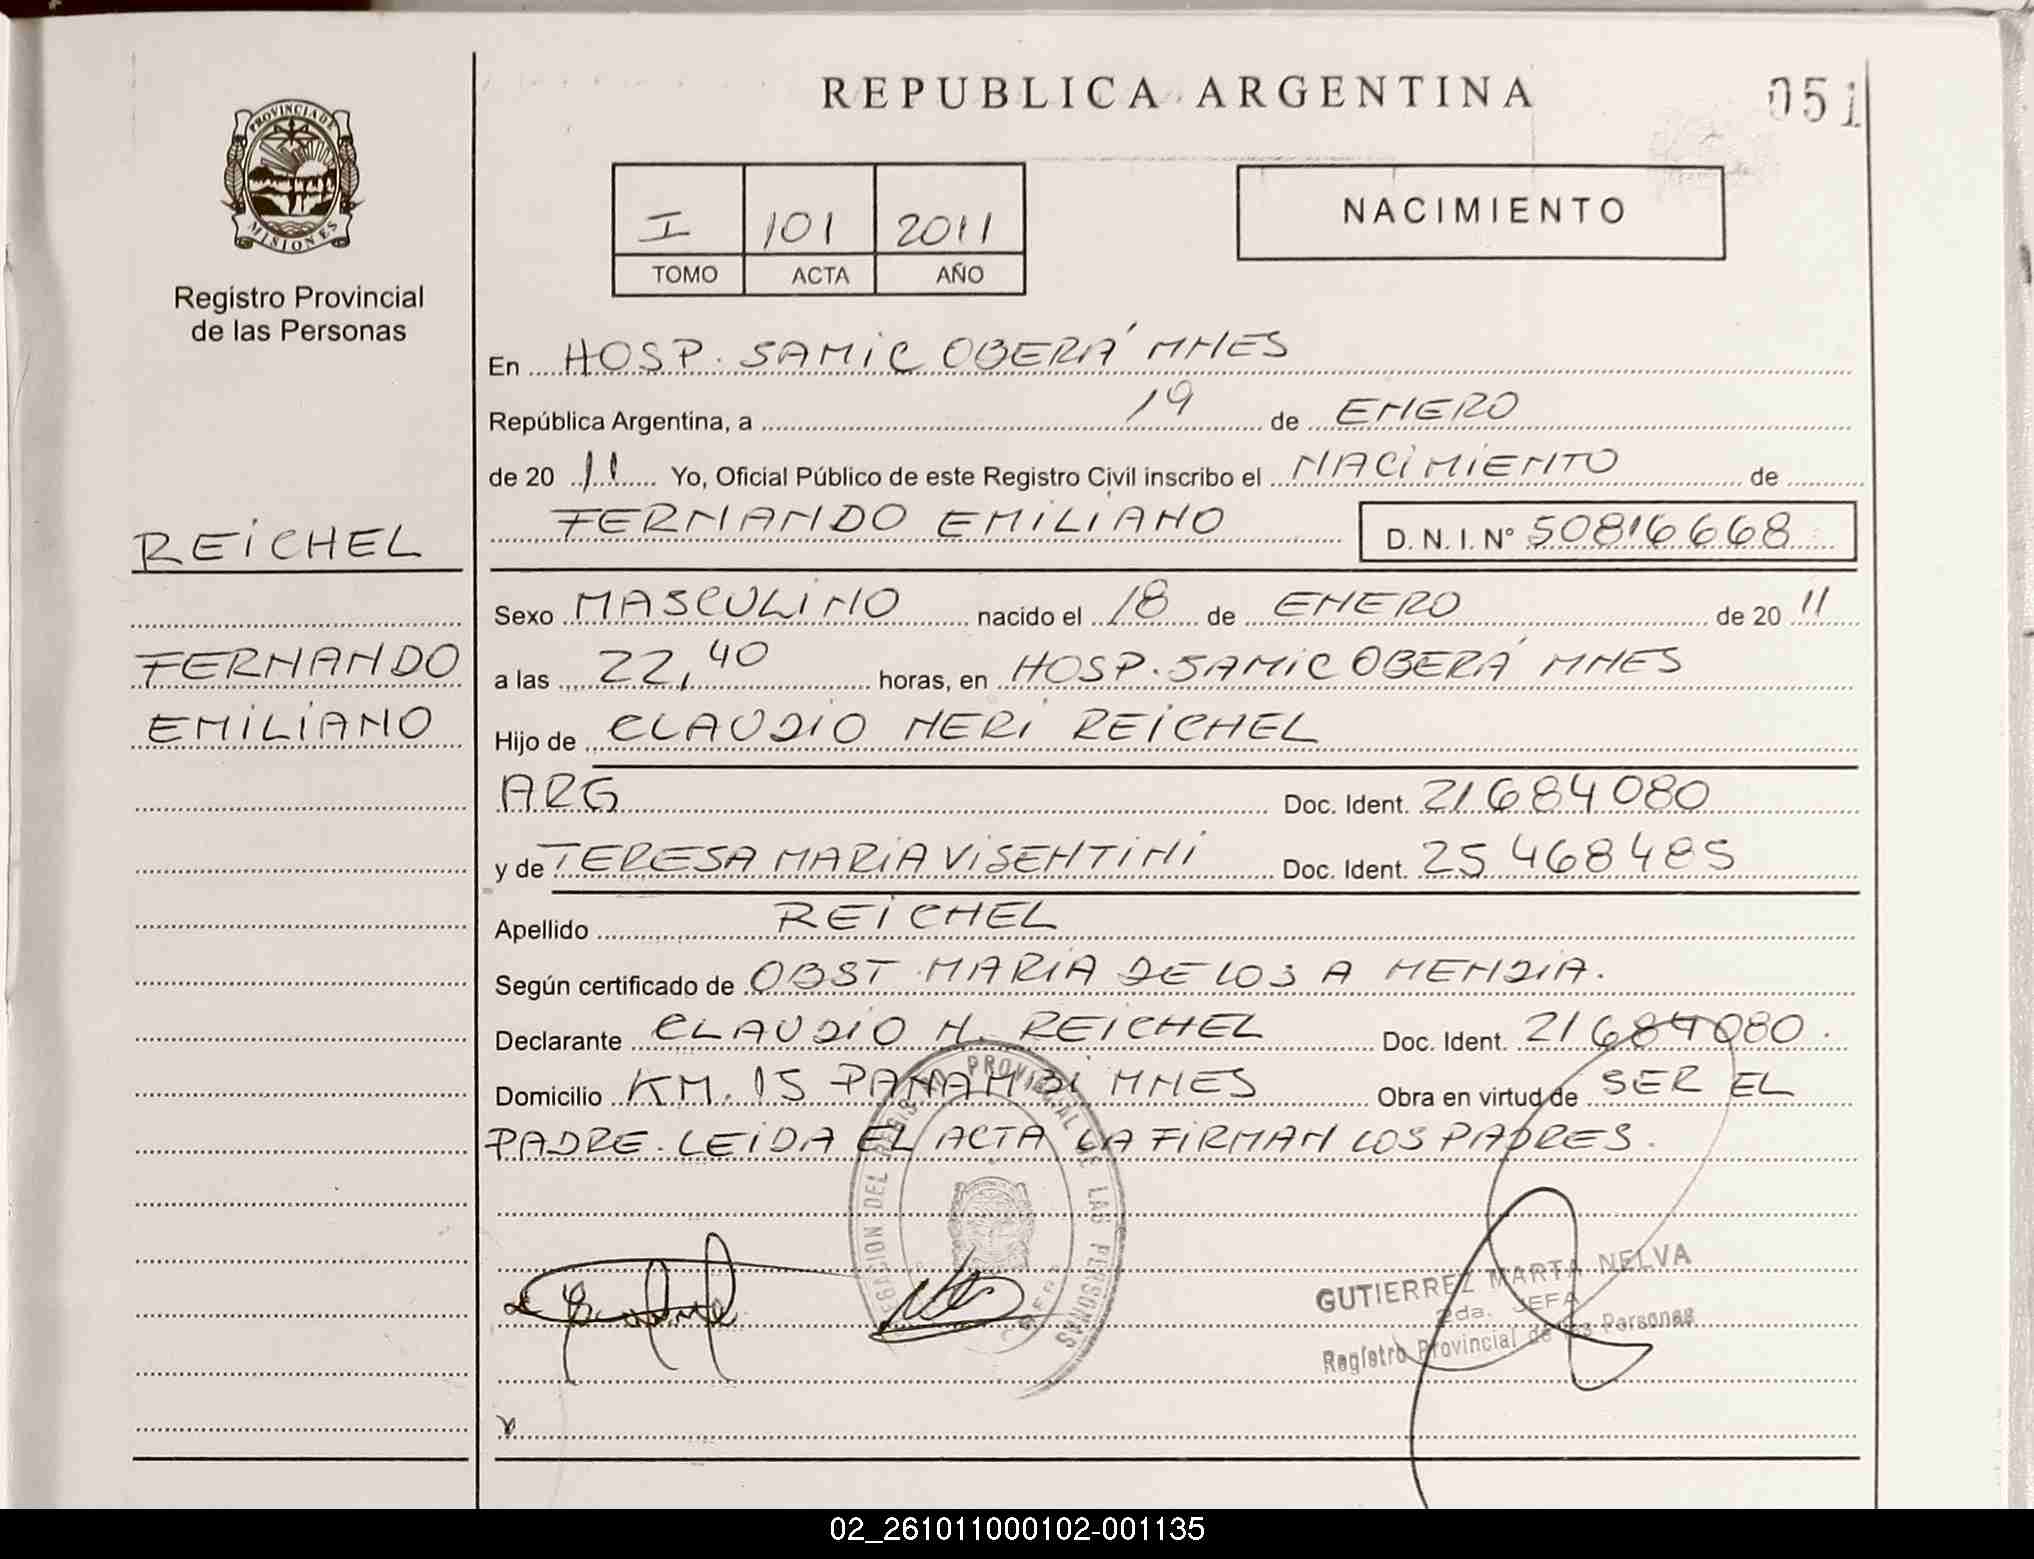 PROVINCIA DE
MISIONES
Registro Provincial
de las Personas
REICHEL
FERNANDO
EMILIANO
REPUBLICA ARGENTINA
051
I 101 2011
TOMO ACTA AÑO
NACIMIENTO
En HOSP. SAMIC OBERÁ MNES
República Argentina, a 19 de ENERO
de 20 11 Yo, Oficial Público de este Registro Civil inscribo el NACIMIENTO de
FERNANDO EMILIANO D. N. I. N° 50816668
Sexo MASCULINO nacido el 18 de ENERO de 20 11
a las 22,40 horas, en HOSP. SAMIC OBERÁ MNES
Hijo de CLAUDIO NERI REICHEL
ARG Doc. Ident. 21684080
y de TERESA MARIA VISENTINI Doc. Ident. 25468485
Apellido REICHEL
Según certificado de OBST MARIA DE LOS A MENDIA.
Declarante CLAUDIO N. REICHEL Doc. Ident. 21684080.
Domicilio KM. 15 PANAMBI MNES Obra en virtud de SER EL
PADRE. LEIDA EL ACTA LA FIRMAN LOS PADRES.
PROVINCIAL DE LAS PERSONAS
GUTIERREZ MARTA NELVA
2da. JEFA
Registro Provincial de las Personas
02_261011000102-001135